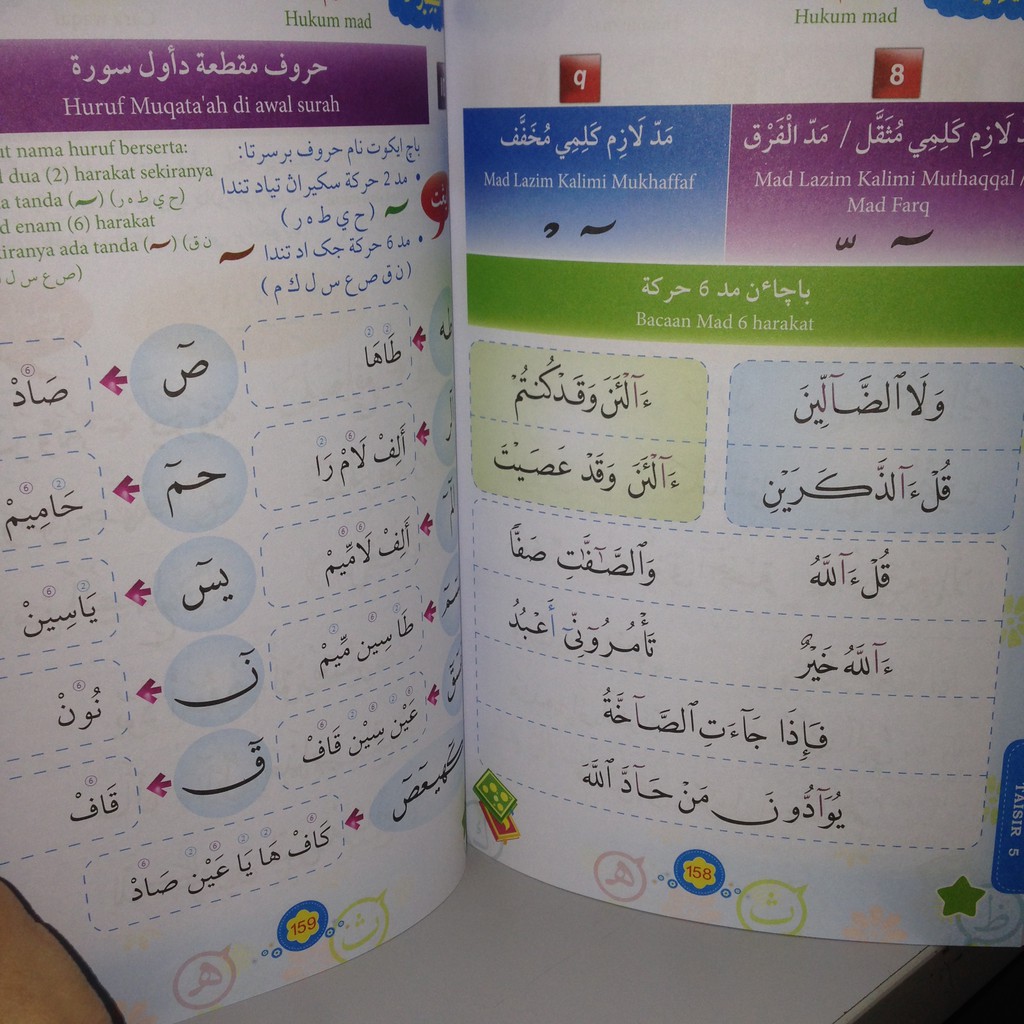 Hukum mad
8
مَدّ لَازِم كَلِمِي مُثَقَّل / مَدّ الْفَرْق
Mad Lazim Kalimi Muthaqqal /
Mad Farq
q
مَدّ لَازِم كَلِمِي مُخَفَّف
Mad Lazim Kalimi Mukhaffaf
باچاءن مد 6 حركة
Bacaan Mad 6 harakat
وَلَا ٱلضَّآلِّينَ
ءَآلْـَٰٔنَ وَقَدْ كُنتُمْ
قُلْ ءَآلذَّكَرَيْنِ
ءَآلْـَٰٔنَ وَقَدْ عَصَيْتَ
قُلْ ءَآللَّهُ
وَٱلصَّـٰٓفَّـٰتِ صَفًّا
ءَآللَّهُ خَيْرٌ
تَأْمُرُوٓنِّىٓ أَعْبُدُ
فَإِذَا جَآءَتِ ٱلصَّآخَّةُ
يُوَآدُّونَ مَنْ حَآدَّ ٱللَّهَ
TAISIR 5
158
Hukum mad
حروف مقطعة دأول سورة
Huruf Muqata'ah di awal surah
باچ ايكوت نام حروف برسرتا:
• مد 2 حركة سكيراڽ تياد تندا
(ح ي ط ه ر)
• مد 6 حركة جك اد تندا
(ن ق ص ع س ل ك م)
nama huruf berserta:
dua (2) harakat sekiranya
tanda (~) (ح ي ط ه ر)
enam (6) harakat
ada tanda (~) (ن ق
ص ع س ل
طَاهَا
صٓ
صَادْ
أَلِفْ لَامْ رَا
حمٓ
حَامِيمْ
أَلِفْ لَامِّيمْ
يسٓ
يَاسِينْ
طَا سِين مِّيمْ
نٓ
نُونْ
عَيْن سِيْن قَافْ
قٓ
قَافْ
كٓهيعٓصٓ
كَافْ هَا يَا عَيْن صَادْ
159